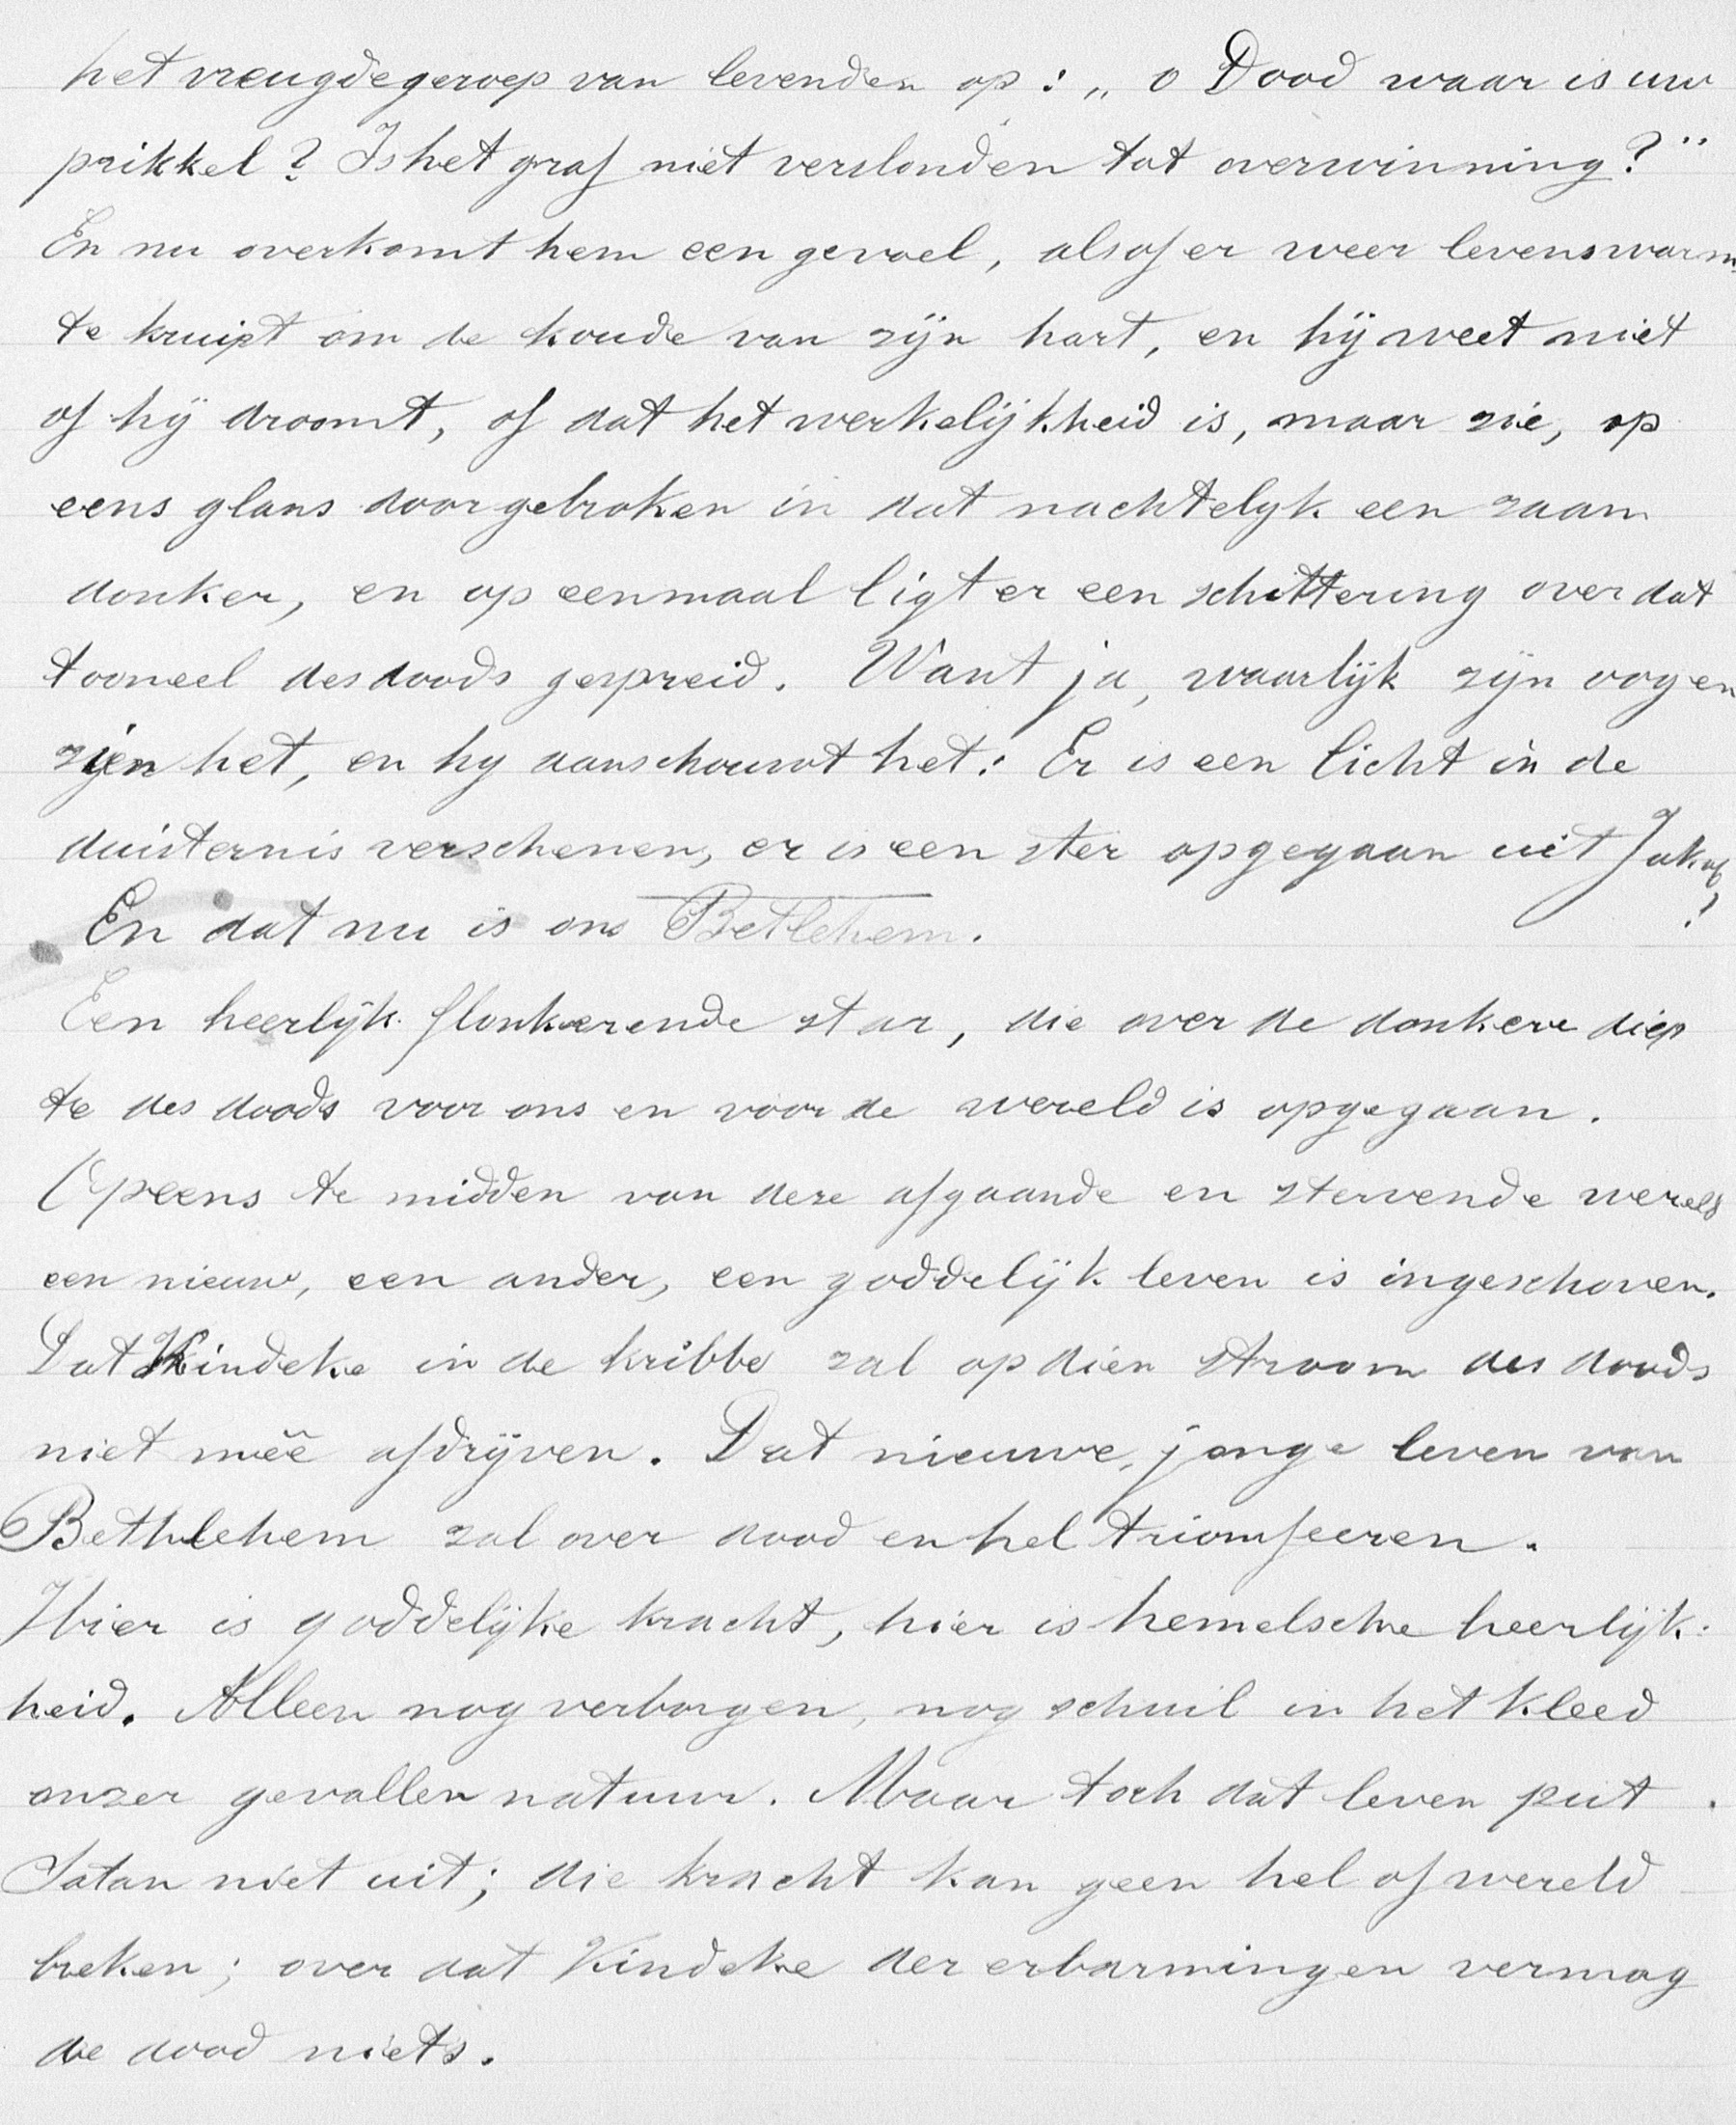 het vreugdegeroep van levenden op: „ o Dood waar is uw
prikkel? Is het graf niet verslonden tot overwinning?"
En nu overkomt hem een gevoel, alsof er weer levenswarm
te kruipt om de koude van zijn hart, en hij weet niet
of hij droomt, of dat het werkelijkheid is, maar zie, op
eens glans doorgebroken in dat nachtelyk een zaam
donker, en op eenmaal ligt er een schittering over dat
tooneel des doods gespreid. Want ja, waarlijk zijn oogen
zien het, en hy aanschouwt het: Er is een licht in de
duisternis verschenen, er is een ster opgegaan uit Jakob
!
En dat nu is ons Betlehem.
Een heerlijk flonkerende star, die over de donkere diep
te des doods voor ons en voor de wereld is opgegaan.
Opeens te midden van deze afgaande en stervende wereld
een nieuw, een ander, een goddelijk leven is ingeschoven.
Dat Kindeke in de kribbe zal op dien stroom des doods
niet meê afdrijven. Dat nieuwe, jonge leven van
Bethlehem zal over dood en hel triomfeeren.
Hier is goddelijke kracht, hier is hemelsche heerlijk-
heid. Alleen nog verborgen, nog schuil in het kleed
onzer gevallen natuur. Maar toch dat leven put
Satan niet uit; die kracht kan geen hel of wereld
breken; over dat Kindeke der erbarmingen vermag
de dood niets.